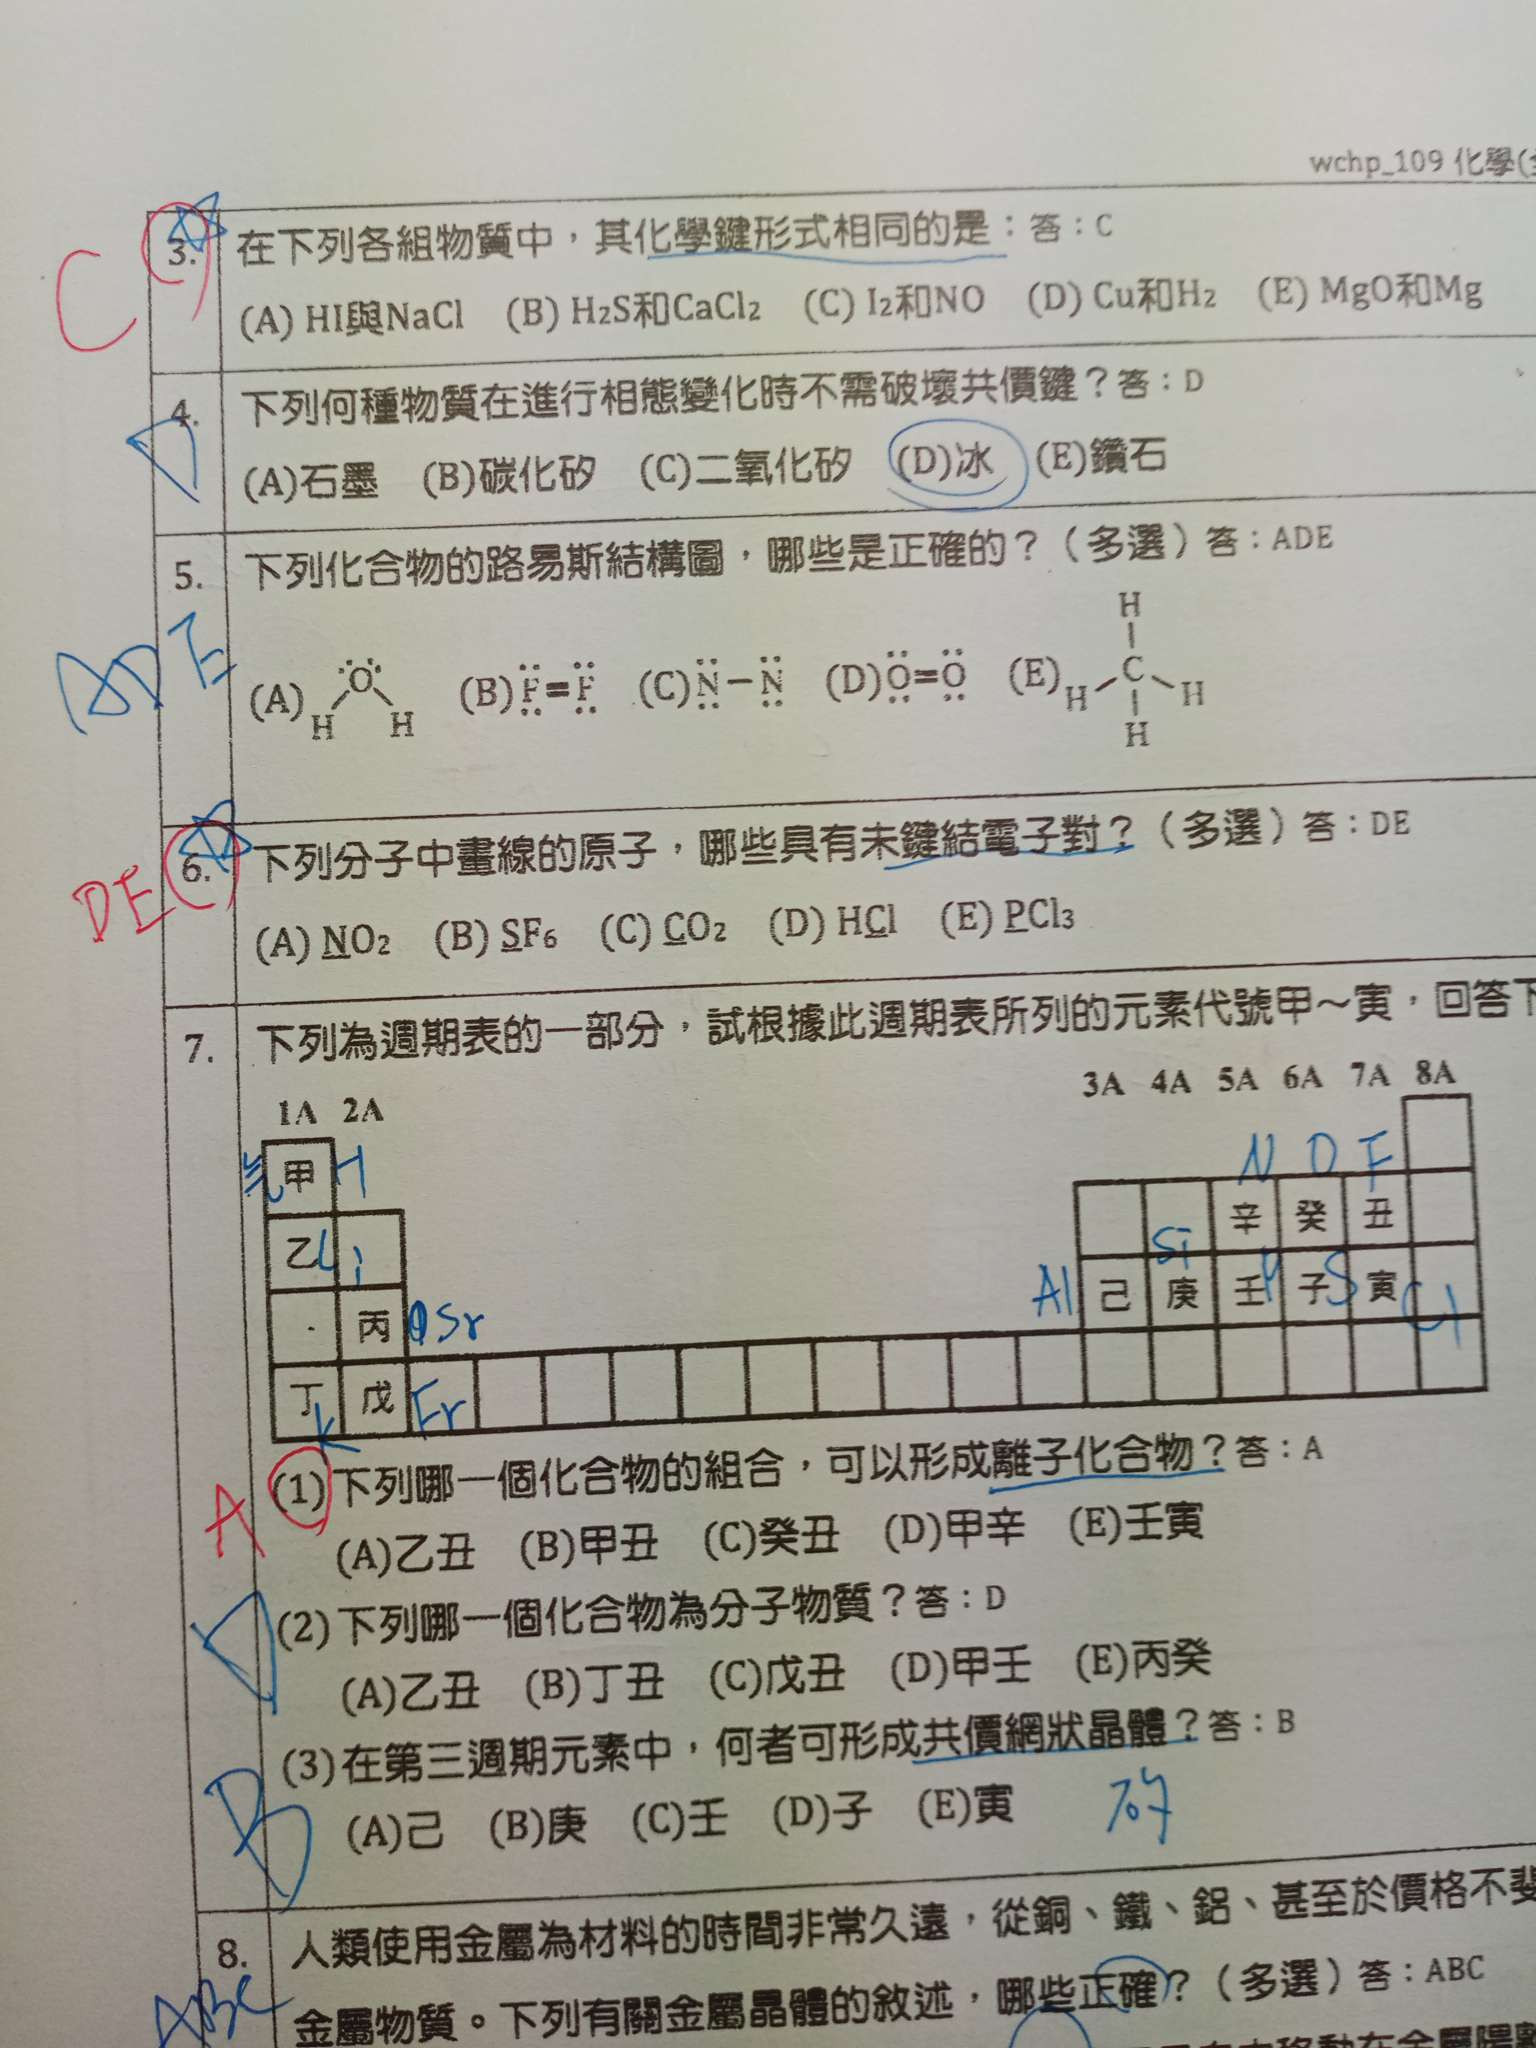 wchp_109 化學(
C 3. 在下列各組物質中，其化學鍵形式相同的是：答：C
(A) HI與NaCl (B) H₂S和CaCl₂ (C) I₂和NO (D) Cu和H₂ (E) MgO和Mg
4. 下列何種物質在進行相態變化時不需破壞共價鍵？答：D
D (A)石墨 (B)碳化矽 (C)二氧化矽 (D)冰 (E)鑽石
5. 下列化合物的路易斯結構圖，哪些是正確的？（多選）答：ADE
ADE
(A) H O H (B) F=F (C) N－N (D) O=O (E) H C H H H
6. 下列分子中畫線的原子，哪些具有未鍵結電子對？（多選）答：DE
DE
(A) NO₂ (B) SF₆ (C) CO₂ (D) HCl (E) PCl₃
7. 下列為週期表的一部分，試根據此週期表所列的元素代號甲～寅，回答下
1A 2A 3A 4A 5A 6A 7A 8A
甲 H N O F
乙 Li 辛 癸 丑
丙 Sr Al 己 Si 庚 壬 P 子 S 寅 Cl
丁 K 戊 Fr
A (1) 下列哪一個化合物的組合，可以形成離子化合物？答：A
(A)乙丑 (B)甲丑 (C)癸丑 (D)甲辛 (E)壬寅
D (2) 下列哪一個化合物為分子物質？答：D
(A)乙丑 (B)丁丑 (C)戊丑 (D)甲壬 (E)丙癸
(3) 在第三週期元素中，何者可形成共價網狀晶體？答：B
B (A)己 (B)庚 (C)壬 (D)子 (E)寅 矽
8. 人類使用金屬為材料的時間非常久遠，從銅、鐵、鋁、甚至於價格不斐
ABC 金屬物質。下列有關金屬晶體的敘述，哪些正確？（多選）答：ABC